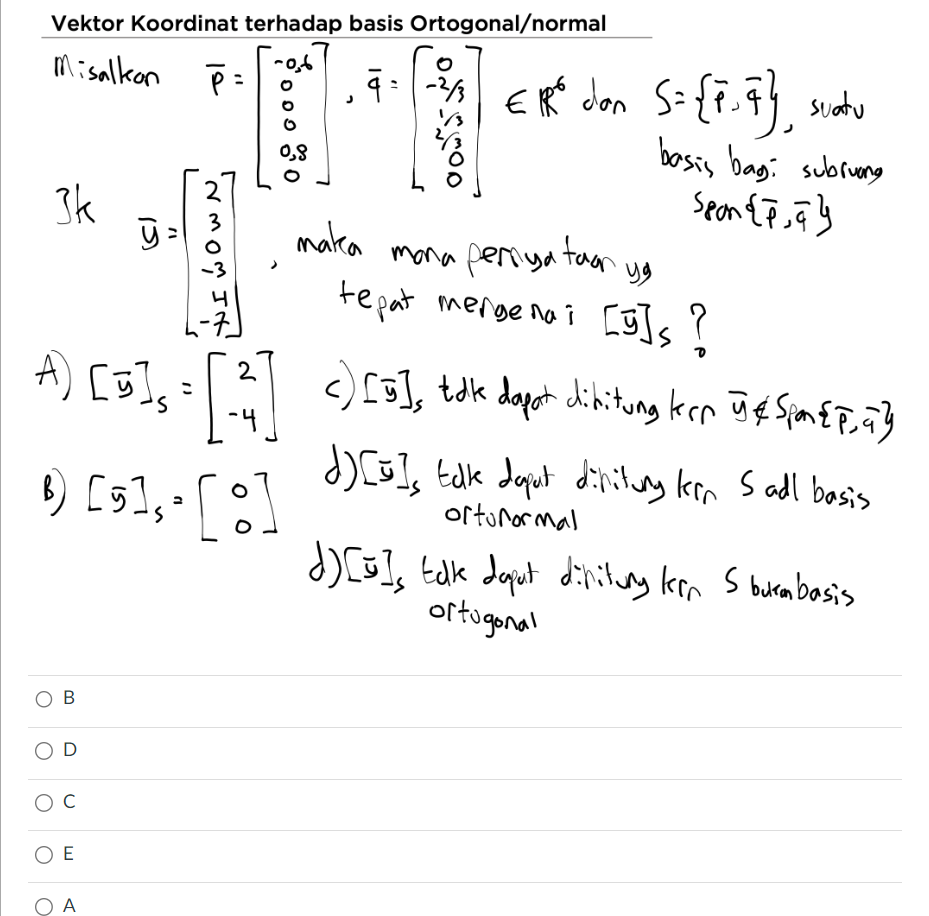 Vektor Koordinat terhadap basis Ortogonal/normal
Misalkan p̄ = [-0,6 0 0 0 0,8 0], q̄ = [0 -2/3 1/3 2/3 0 0] ∈ ℝ⁶ dan S = {p̄, q̄}, suatu
basis bagi subruang
Span{p̄, q̄}
Jk ȳ = [2 3 0 -3 4 -7], maka mana pernyataan yg
tepat mengenai [ȳ]ₛ ?
A) [ȳ]ₛ = [2 -4]
B) [ȳ]ₛ = [0 0]
c) [ȳ]ₛ tdk dapat dihitung krn ȳ ∉ Span{p̄, q̄}
d) [ȳ]ₛ tdk dapat dihitung krn S adl basis
ortonormal
d) [ȳ]ₛ tdk dapat dihitung krn S bukan basis
ortogonal
B
D
C
E
A